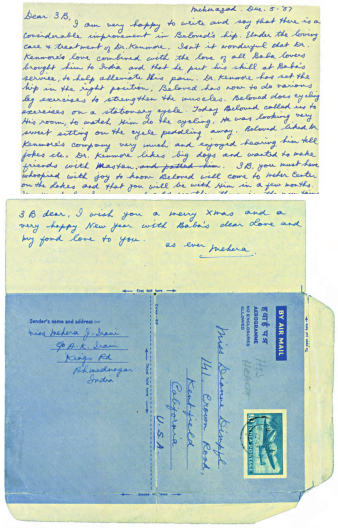 Meherazad Dec. 5 - '57
Dear 3B,
I am very happy to write and say that there is a
considerable improvement in Beloved's hip. Under the loving
care & treatment of Dr. Kenmore. Isnt it wonderful that Dr.
Kenmore's love combined with the love of all Baba lovers
brought him to India and that he put his skill at Baba's
service, to help alleviate His pain. Dr Kenmore has set the
hip in the right position, Beloved has now to do various
leg exercises to strengthen the muscles. Beloved does cycling
exercises on a stationary cycle. Today Beloved called us to
His room, to watch Him do the cycling. He was looking very
sweet sitting on the cycle peddling away. Beloved liked Dr
Kenmore's company very much and enjoyed hearing him tell
jokes etc. Dr Kenmore likes big dogs and wanted to make
friends with Mastan, and patted him. 3B, you must have
whooped with joy to know Beloved will come to Meher Center
on the Lakes and that you will be with Him in a few months
3B dear, I wish you a merry Xmas and a
very happy New Year with Baba's dear Love and
my fond love to you.
as ever Mehera.
First fold here
Sender's name and address :—
Miss Mehera J. Irani
c/o A.K. Irani
Kings Rd
Ahmednagar
India
BY AIR MAIL
हवाई पत्र
AEROGRAMME
NO ENCLOSURES
ALLOWED
Miss Dianne Dimpfl
141. Crown Road,
Kentfield
California
U.S.A
INDIA POSTAGE